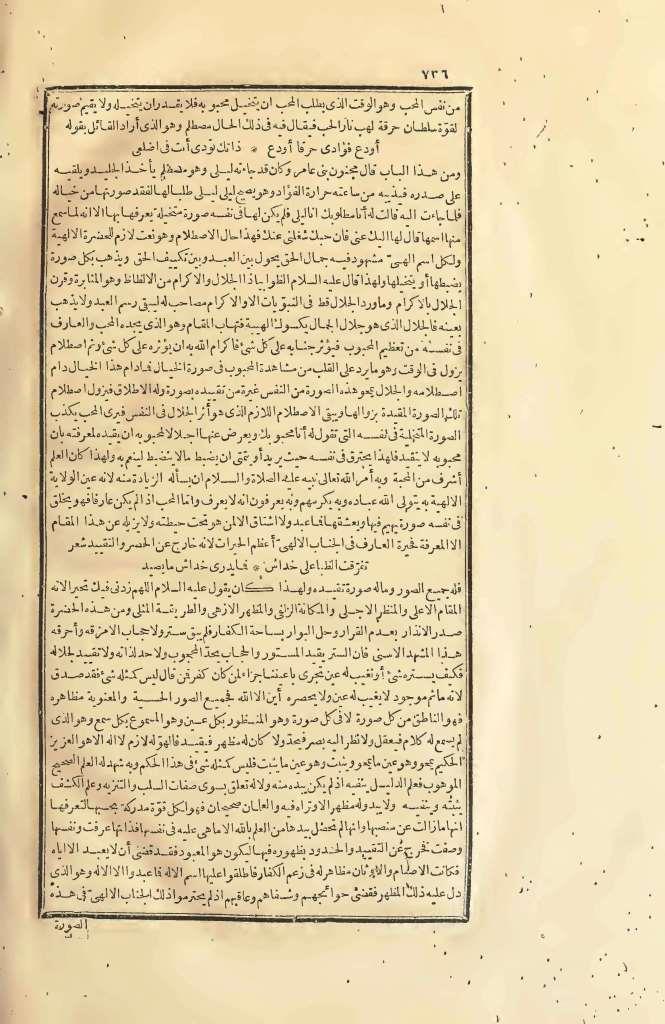 ٧٣٦
من نفس المحب وهو الوقت الذي يطلب المحب ان يتخيل محبوبه فلا يقدر ان يتخيله ولا يقيم صورته
لقوّة سلطان حرقة لهب نار الحب فيقال فيه فى ذلك الحال مصطلم وهو الذى أراد القائل بقوله
أودع فؤادى حرقا أودع * ذاتك تؤذى أنت فى اضلعى
ومن هذا الباب قال مجنون بنى عامر وكان قد جاءته ليلى وهو مصطلم يأخذ الجليد ويلقيه
على صدره فيذيبه من ساعته حرارة الفؤاد وهو يصيح ليلى ليلى طلبا لها لفقد صورتها من خياله
فلما جاءت اليه قالت له أنا مطلوبك انا ليلى فلم يكن لها فى نفسه صورة متخيلة يعرفها بها الا انه لما سمع
منها اسمها قال لها اليك عنى فان حبك شغلنى عنك فهذا حال الاصطلام وهو نعت لازم للحضرة الالهية
ولكل اسم الهىّ مشهود فيه جمال الحق يحول بين العبد وبين تكييف الحق ويذهب بكل صورة
يضبطها أو يتخيلها ولهذا قال عليه السلام الظوا بياذا الجلال والاكرام من الالفاظ وهو المثابرة وقرن
الجلال بالاكرام وما ورد الجلال قط فى النبوّيات الا والاكرام مصاحب له ليبقى رسم العبد ولا يذهب
بعينه فالجلال الذى هو جلال الجمال يكسوك الهيبة فتهاب المقام وهو الذى يجده المحب والعارف
فى نفسه من تعظيم المحبوب فيؤثر جنابه على كل شئ فاكرام الله به ان يؤثره على كل شئ وثم اصطلام
يزول فى الوقت وهو ما يرد على القلب من مشاهدة المحبوب فى صورة الخيال فما دام هذا الخيال دام
اصطلامه والجلال يمحو هذه الصورة من النفس غيرة من تقييده بصورة وله الاطلاق فيزول اصطلام
تلك الصورة المقيدة بزوالها ويبقى الاصطلام اللازم الذى هو أثر الجلال فى النفس فيرى المحب يكذب
الصورة المتخيلة فى نفسه التى تقول له أنا محبوبك ويعرض عنها اجلالا لمحبوبه ان يقيده لمعرفته بان
محبوبه لا يتقيد فلهذا يحترق فى نفسه حيث يريد أو يتمنى ان يضبط ما لا ينضبط لينعم به ولهذا كان العلم
أشرف من المحبة وبه أمر الله تعالى نبيه عليه الصلاة والسلام ان يسأله الزيادة منه لانه عين الولاية
الالهية به يتولى الله عباده وبه يكرمهم وبه يعرفون انه لا يعرف وأما المحب اذا لم يكن عارفا فهو يخلق
فى نفسه صورة يهيم فيها ويعشقها فما عبد ولا اشتاق الا لمن هو تحت حيطته ولا يزيله عن هذا المقام
الا المعرفة فحيرة العارف فى الجناب الالهىّ أعظم الحيرات لانه خارج عن الحصر والتقييد شعر
تفرّقت الظبا على خداش * فما يدرى خداش ما يصيد
فله جميع الصور وما له صورة تقيده ولهذا كان يقول عليه السلام اللهم زدنى فيك تحيرا لانه
المقام الاعلى والمنظر الاجلى والمكانة الزلفى والمظهر الازهى والطريقة المثلى ومن هذه الحضرة
صدر الانذار بعدم القرار وحل البوار بساحة الكفار فلم يبق ستر ولا حجاب الا مزقه وأحرقه
هذا المشهد الاسنى فان الستر يقيد المستور والحجاب يحدّ المحجوب ولا حد لذاته ولا تقييد لجلاله
فكيف يستره شئ أو تغيب له عين تجرى باعيننا جزاء لمن كان كفر فمن قال ليس كمثله شئ فقد صدق
لانه ما ثم موجود لا يغيب له عين ولا يحصره أين الا الله فجميع الصور الحسية والمعنوية مظاهره
فهو الناطق من كل صورة لا فى كل صورة وهو المنظور بكل عين وهو المسموع بكل سمع وهو الذى
لم يسمع له كلام فيعقل ولا نظر اليه بصر فيحدّ ولا كان له مظهر فيقيد فالهوّ له لازم لا اله الا هو العزيز
الحكيم يمحو وهو عين ما يمحو ويثبت وهو عين ما يثبت فليس كمثله شئ فى هذا الحكم وبه شهد له العلم الصحيح
الموهوب فعلم الدليل ينفيه اذ لم يكن بيده منه ولا له تعلق بسوى صفات السلب والتنزيه وعلم الكشف
يثبته ويبقيه ولا يبدو له مظهر الا ويراه فيه والعلمان صحيحان فهو لكل قوّة مدركة بحسبها لتعرفها
انها ما زالت عن منصبها وانها لم يحصل بيدها من العلم بالله الا ما هى عليه فى نفسها فذاتها عرفت ونفسها
وصفت فخرج عن التقييد والحدود بظهوره فيها ليكون هو المعبود فقد قضى أن لا يعبد الا اياه
فكانت الاصنام والاوثان مظاهر له فى زعم الكفار فاطلقوا عليها اسم الاله فما عبدوا الا الاله وهو الذى
دل عليه ذلك المظهر فقضى حوائجهم وسقاهم وعاقبهم اذ لم يحترموا ذلك الجناب الالهىّ فى هذه
الصورة